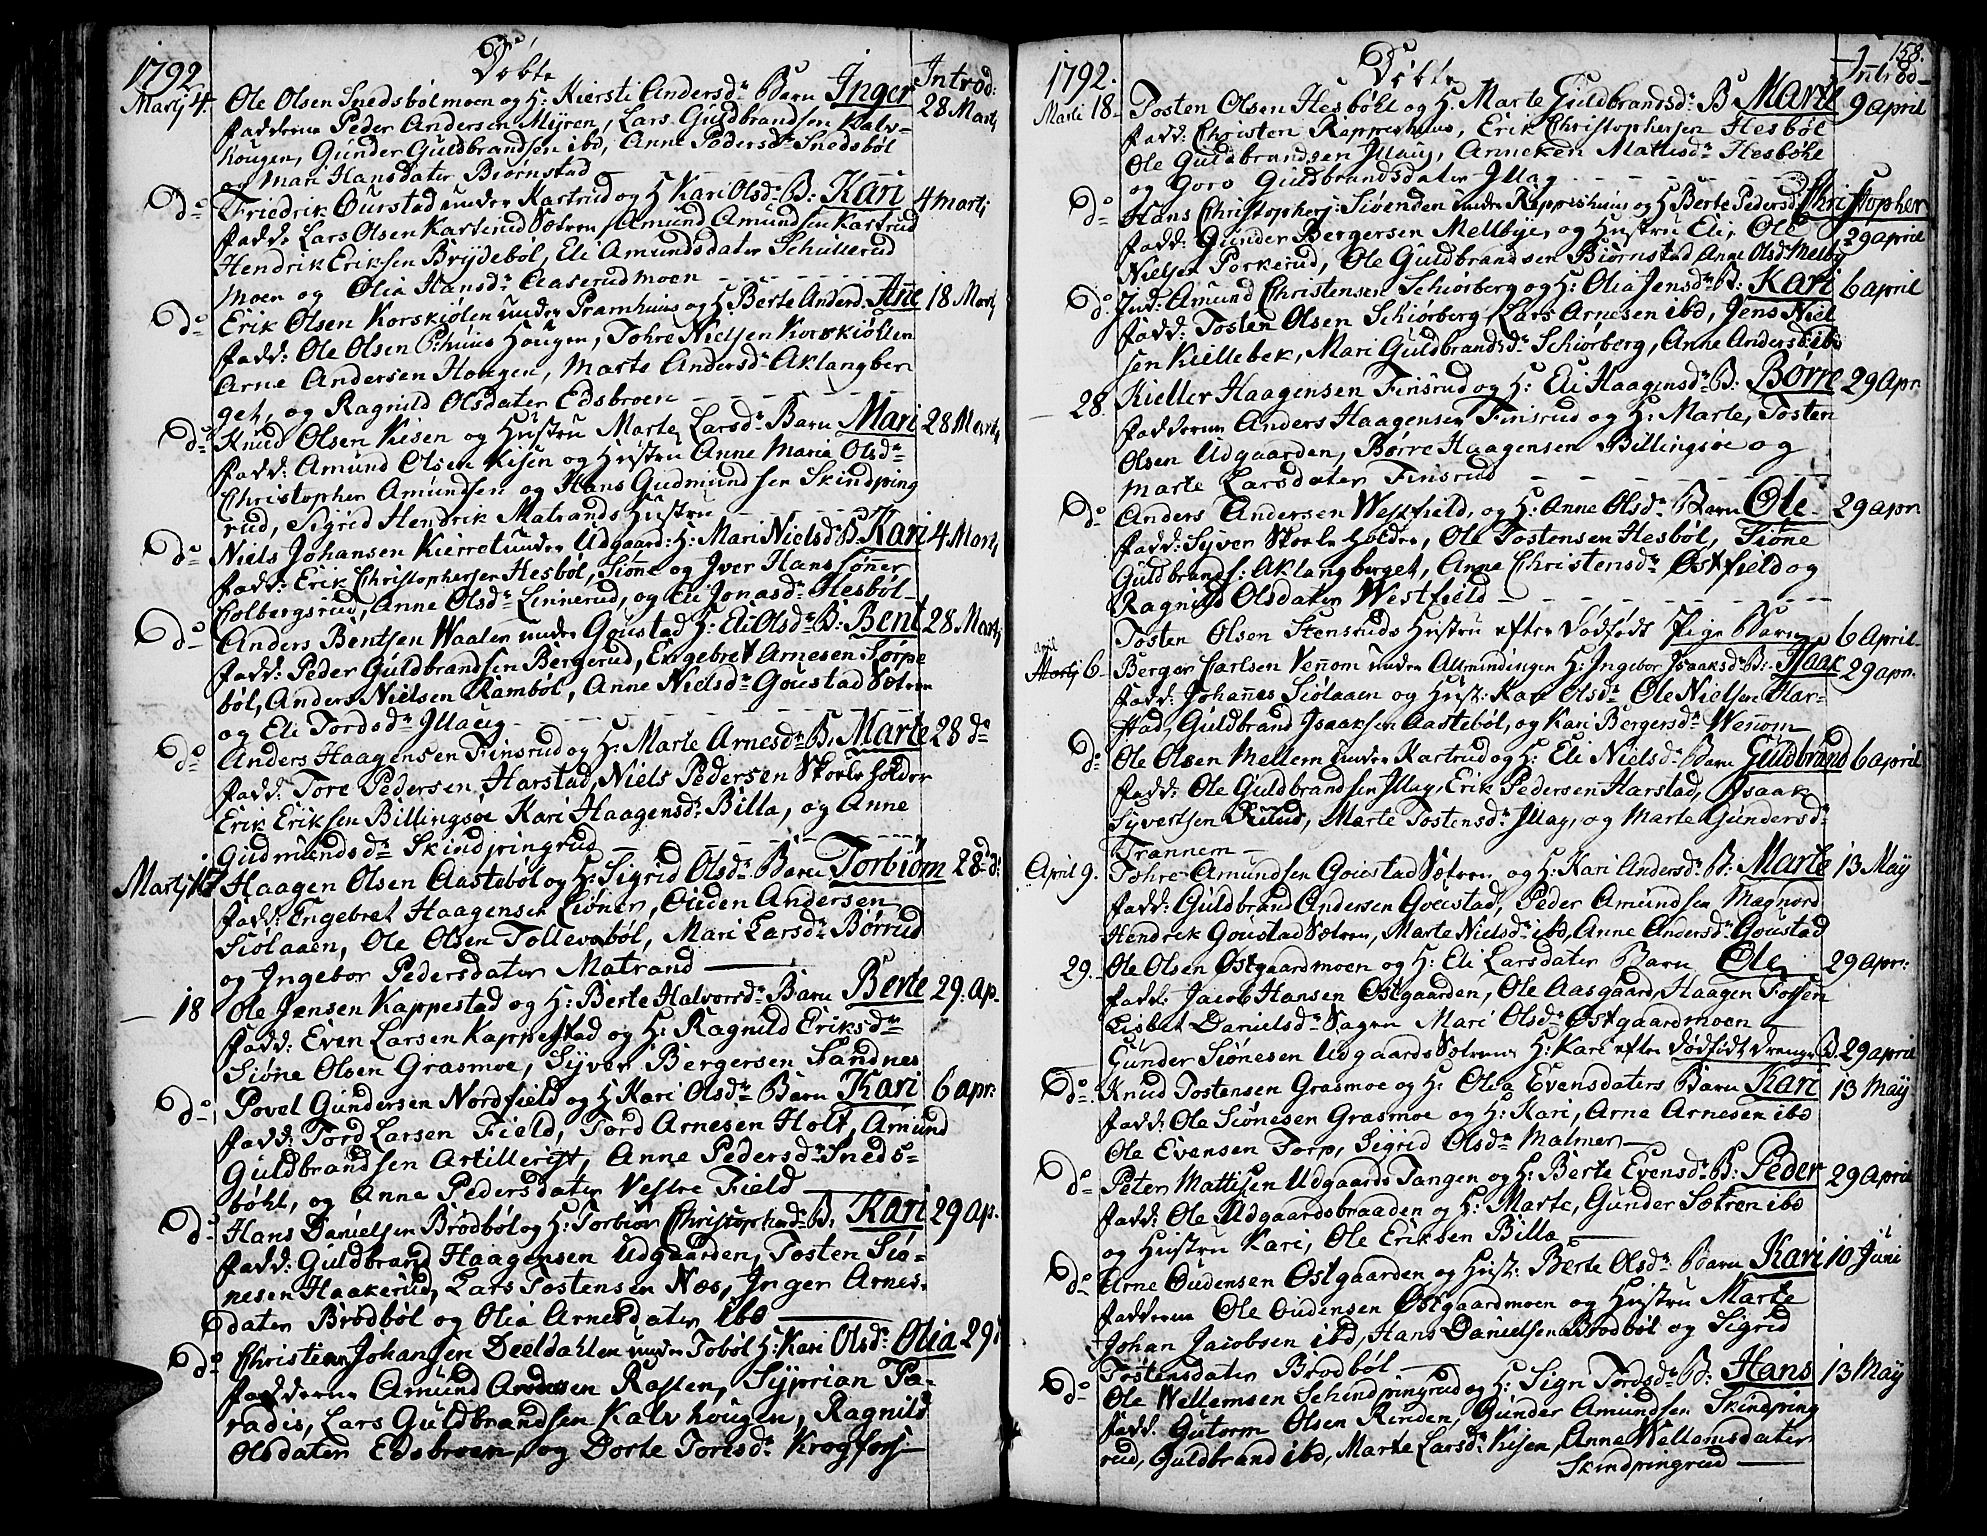 1792 Døbte Introd:
Martj 4. Ole Olsen Snedsbølmoen og H: Kiersti Andersdr Barn Inger 28 Martj
Faddere Peder Andersen Myren, Lars Guldbrandsen Kalv-
hougen, Gunder Guldbrandsen ibd, Anne Pedersdr Snedsbøl
og Mari Hansdater Biørnstad
do Friedrik Ourstad under Kartrud og H Kari Olsdr B: Kari 4 Martj
Fadd: Lars Olsen Kartrud Sætren Amund Amundsen Kartrud
Hendrik Eriksen Brydebøl, Eli Amundsdater Schullerud
moen og Olia Hansdr Aaserudmoen
do Erik Olsen Korskiølen under Pramhuus og H: Berte Andersd. Ane 18 Martj
Fadd: Ole Olsen P:huus Hougen, Tohre Nielsen Korskiølen
Arne Andersen Hougen, Marte Andersdr Aklangber
get, og Ragnild Olsdater Edsbroen
do Knud Olsen Kiisen og Hustru Marte Larsdr Barn Mari 28 Martj
Fadd: Amund Olsen Kisen og Hustru Anne Maria Olsdr
Christopher Amundsen og Hans Gudmundsen Skindpring
rud, Sigrid Hendrik Matrands Hustru
do Niels Johansen Kierret under Udgaard: H: Mari Nielsdr B. Kari 4 Martj
Fadd: Erik Christophersen Hesbøl, Siøne og Jver Hans sønner
Colbergsrud, Anne Olsdr Linnerud, og Eli Jonasdr Hesbøl
do Anders Bentsen Waalen under Goustad H: Eli Olsdr B: Bent 28 Martj
Fadd: Peder Guldbrandsen Bergerud, Engebret Arnesen Sørpe
bøl, Anders Nielsen Rambøl, Anne Nielsdr Goustad Sætren
og Eli Tordsdr Jllaug
do Anders Haagensen Finsrud og H: Marte Arnesdr B. Marte 28 do
Fadd: Tore Pedersen Harstad, Niels Pedersen Skoeleholder
Erik Eriksen Billingsøe Kari Haagensdr Billa, og Anne
Gudmundsdr Skindpringrud
Martj 16 Haagen Olsen Aastebøl og H: Sigrid Olsdr Barn Torbiørn 28 d:
Fadd: Engebret Haagensen Liøner, Ouden Andersen
Siølaaen, Ole Olsen Tollevsbøl, Mari Larsdr Børrud
og Ingebor Pedersdater Matrand
18 Ole Jensen Kappestad og H: Berte Halvorsdr Barn Berte 29. Ap.
Fadd: Even Larsen Kappestad og H: Ragnild Eriksdr
Siøne Olsen Grasmoe, Syver Bergersen Sandnes
do Povel Gundersen Nordfield og H Kari Olsdr Barn Kari 6 apr:
Fadd: Tord Larsen Field, Tord Arnesen Holt, Amund
Guldbrandsen Artillerist, Anne Pedersdr Sneds-
bøhl, og Anne Pedersdater Vestre Field
do Hans Danielsen Brødbøl og H: Torbiør Christophersdr B. Kari 29 Ap.
Fadd: Guldbrand Haagensen Udgaarden, Tosten Siø-
nesen Haakerud, Lars Tostensen Næs, Jnger Arnes-
dater Brødbøl og Olia Arnesdater ibd
do Christen Johansen Deeldahlen under Tobøl H: Kari Olsd: Olia 29
Fadderne Amund Andersen Rasten, Syprian Pa-
radis, Lars Guldbrandsen Kalvhougen, Ragnild
Olsdater Edsbroen, og Dorte Toresdr Krogfors
158.
1792. Døbte Introd
Marti 18 Tosten Olsen Hesbøhl og H: Marte Guldbrandsdr B Marte 9 april
Fadd: Christen Rappershuus, Erik Christophersen Hesbøl
Ole Guldbrandsen Jllaug, Anneken Mattisdr Hesbøhl
og Goro Guldbrandsdater Jllag
do Hans Christophers: Siøenden under Rappershuus og H Berte Pedersd Christopher
Fadd: Gunder Bergersen Mellbye, og Hustru Eli, Ole 29 april
Nielsen Porkerud, Ole Guldbrandsen Biørnstad Anne Olsdr Melby
do Ind: Amund Christensen Schiørberg og H: Olia Jensdr B: Kari 6 april
Fadd: Tosten Olsen Schiørberg Lars Arnesen ibd, Jens Niel
sen Kiellebek, Mari Guldbrandsdr Schiørberg, Anne Andersd ibd
28 Kieller Haagensen Finsrud og H: Eli Haagensdr B: Børre 29 Apr
Fadderne Anders Haagensen Finsrud og H: Marte, Tosten
Olsen Udgaarden, Børre Haagensen Billingsøe og
Marte Larsdater Finsrud
do Anders Andersen Westfield, og H: Anne Olsdr Barn Ole 29 apr:
Fadd: Syver Skoeleholder, Ole Tostensen Hesbøl, Siøne
Guldbrands: Aklangberget, Anne Christensdr Østfield og
Ragnild Olsdater Westfield
Tosten Olsen Stensruds Hustru efter Dødfødt Pige Barn 6 April
april
Martj 6 Berger Carlsen Vennom under Allmindingen H: Ingebor Isaaksdr B: Isaak 29 apr.
Fadd: Johannes Siølaaen og Hust: Kari Olsdr Ole Nielsen Har-
stad, Guldbrand Jsaaksen Aastebøl, og Kari Bergersdr Wennom
do Ole Olsen Mellem under Kartrud og H: Eli Nielsdr Barn Guldbrand 6 april
Fadd: Ole Guldbrandsen Jllag, Erik Pedersen Harstad, Jsaak
Syvertsen Rutud, Marte Tostensdr Jllag, og Marte Gundersdr
Trannem
April 9. Tohre Amundsen Goustad Sætren og H: Kari Andersdr B: Marte 13 May
Fadd: Guldbrand Andersen Goustad, Peder Amundsen Magnord
Hendrik Goustad Sætren, Marte Nielsdr ibd, Anne Andersdr Goustad
29. Ole Olsen Østgaardmoen og H: Eli Larsdater Barn Ole 29 apr:
Fadd: Jacob Hansen Østgaarden, Ole Aasgaard, Haagen Fossen
Lisbet Danielsdr Sagen Mari Olsdr Østgaardmoen
Gunder Siønesen Udgaards Sætren H: Kari efter dødfødt drenge B. 29 april
do Knud Tostensen Grasmoe og H: Olia Evensdaters Barn Kari 13 May
Fadd: Ole Siønesen Grasmoe og H: Kari, Arne Arnesen ibd
Ole Evensen Torp, Sigrid Olsdr Malmer
do Peter Mattisen Udgaards Tangen og H: Berte Evensdr B: Peder 29 April
Fadd: Ole Udgaardsbraaden og H: Marte, Gunder Sætren ibd
og Hustru Kari, Ole Eriksen Billa
do Arne Oudensen Østgaarden og Hust: Berte Olsdr Barn Kari 10 Juni
Fadderne Ole Oudensen Østgaardmoen og Hustru Marte
Johan Jacobsen ibd, Hans Danielsen Brødbøl og Sigrid
Tostensdater Brødbøl
do Ole Wellemsen Schindpringrud og H: Sigri Tordsdr B: Hans 13 May
Fadd: Gutorm Olsen Rinden, Gunder Amundsen Skindpring
rud, Guldbrand ibd, Marte Larsdr Kisen, Anne Wellemsdater
Skindpringrud